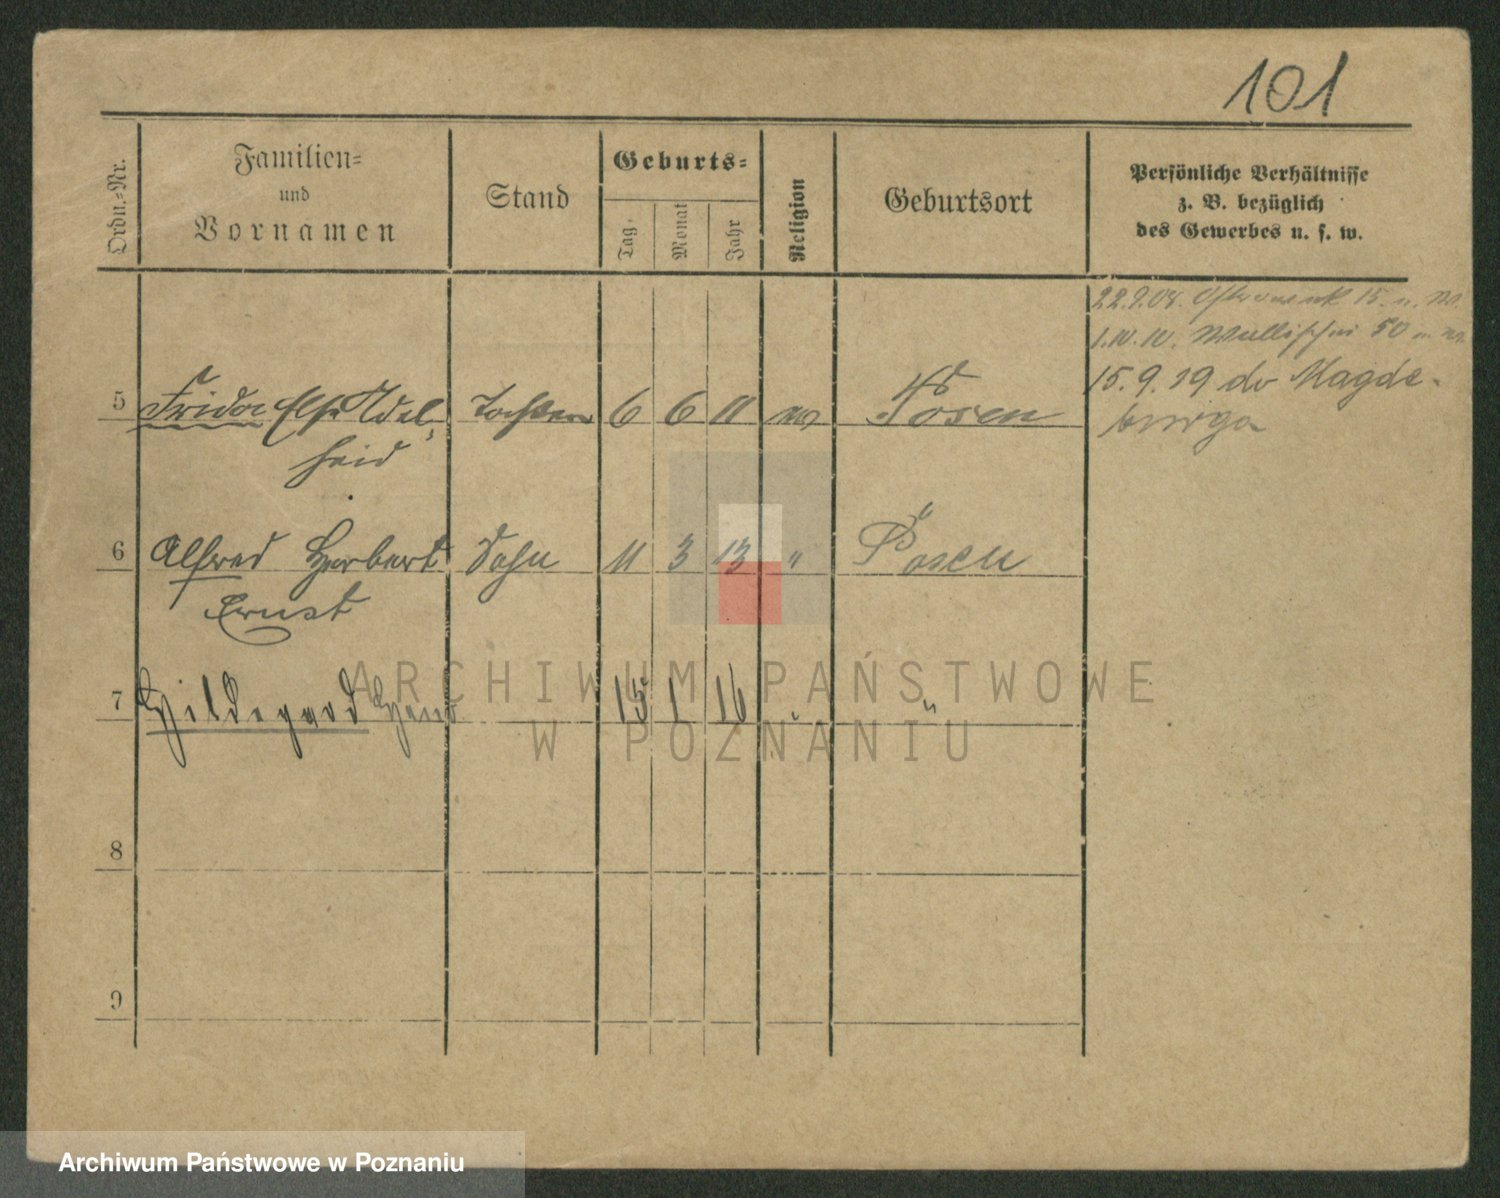 101
Ordn.=Nr.
Familien=
und
Vornamen
Stand
Geburts=
Tag.
Monat
Jahr
Religion
Geburtsort
Persönliche Verhältnisse
z. B. bezüglich
des Gewerbes u. s. w.
22.9.08. 15.
1.IV.10. Wallischei 50
15.9.19 do Magde-
burga
5 Frida Else Adel- Tochter 6 6 11 Posen
heid
6 Alfred Herbert Sohn 11 3 13 " Posen
Ernst
7 Hildegard 15 1 16 "
8
9
ARCHIWUM PAŃSTWOWE
W POZNANIU
Archiwum Państwowe w Poznaniu